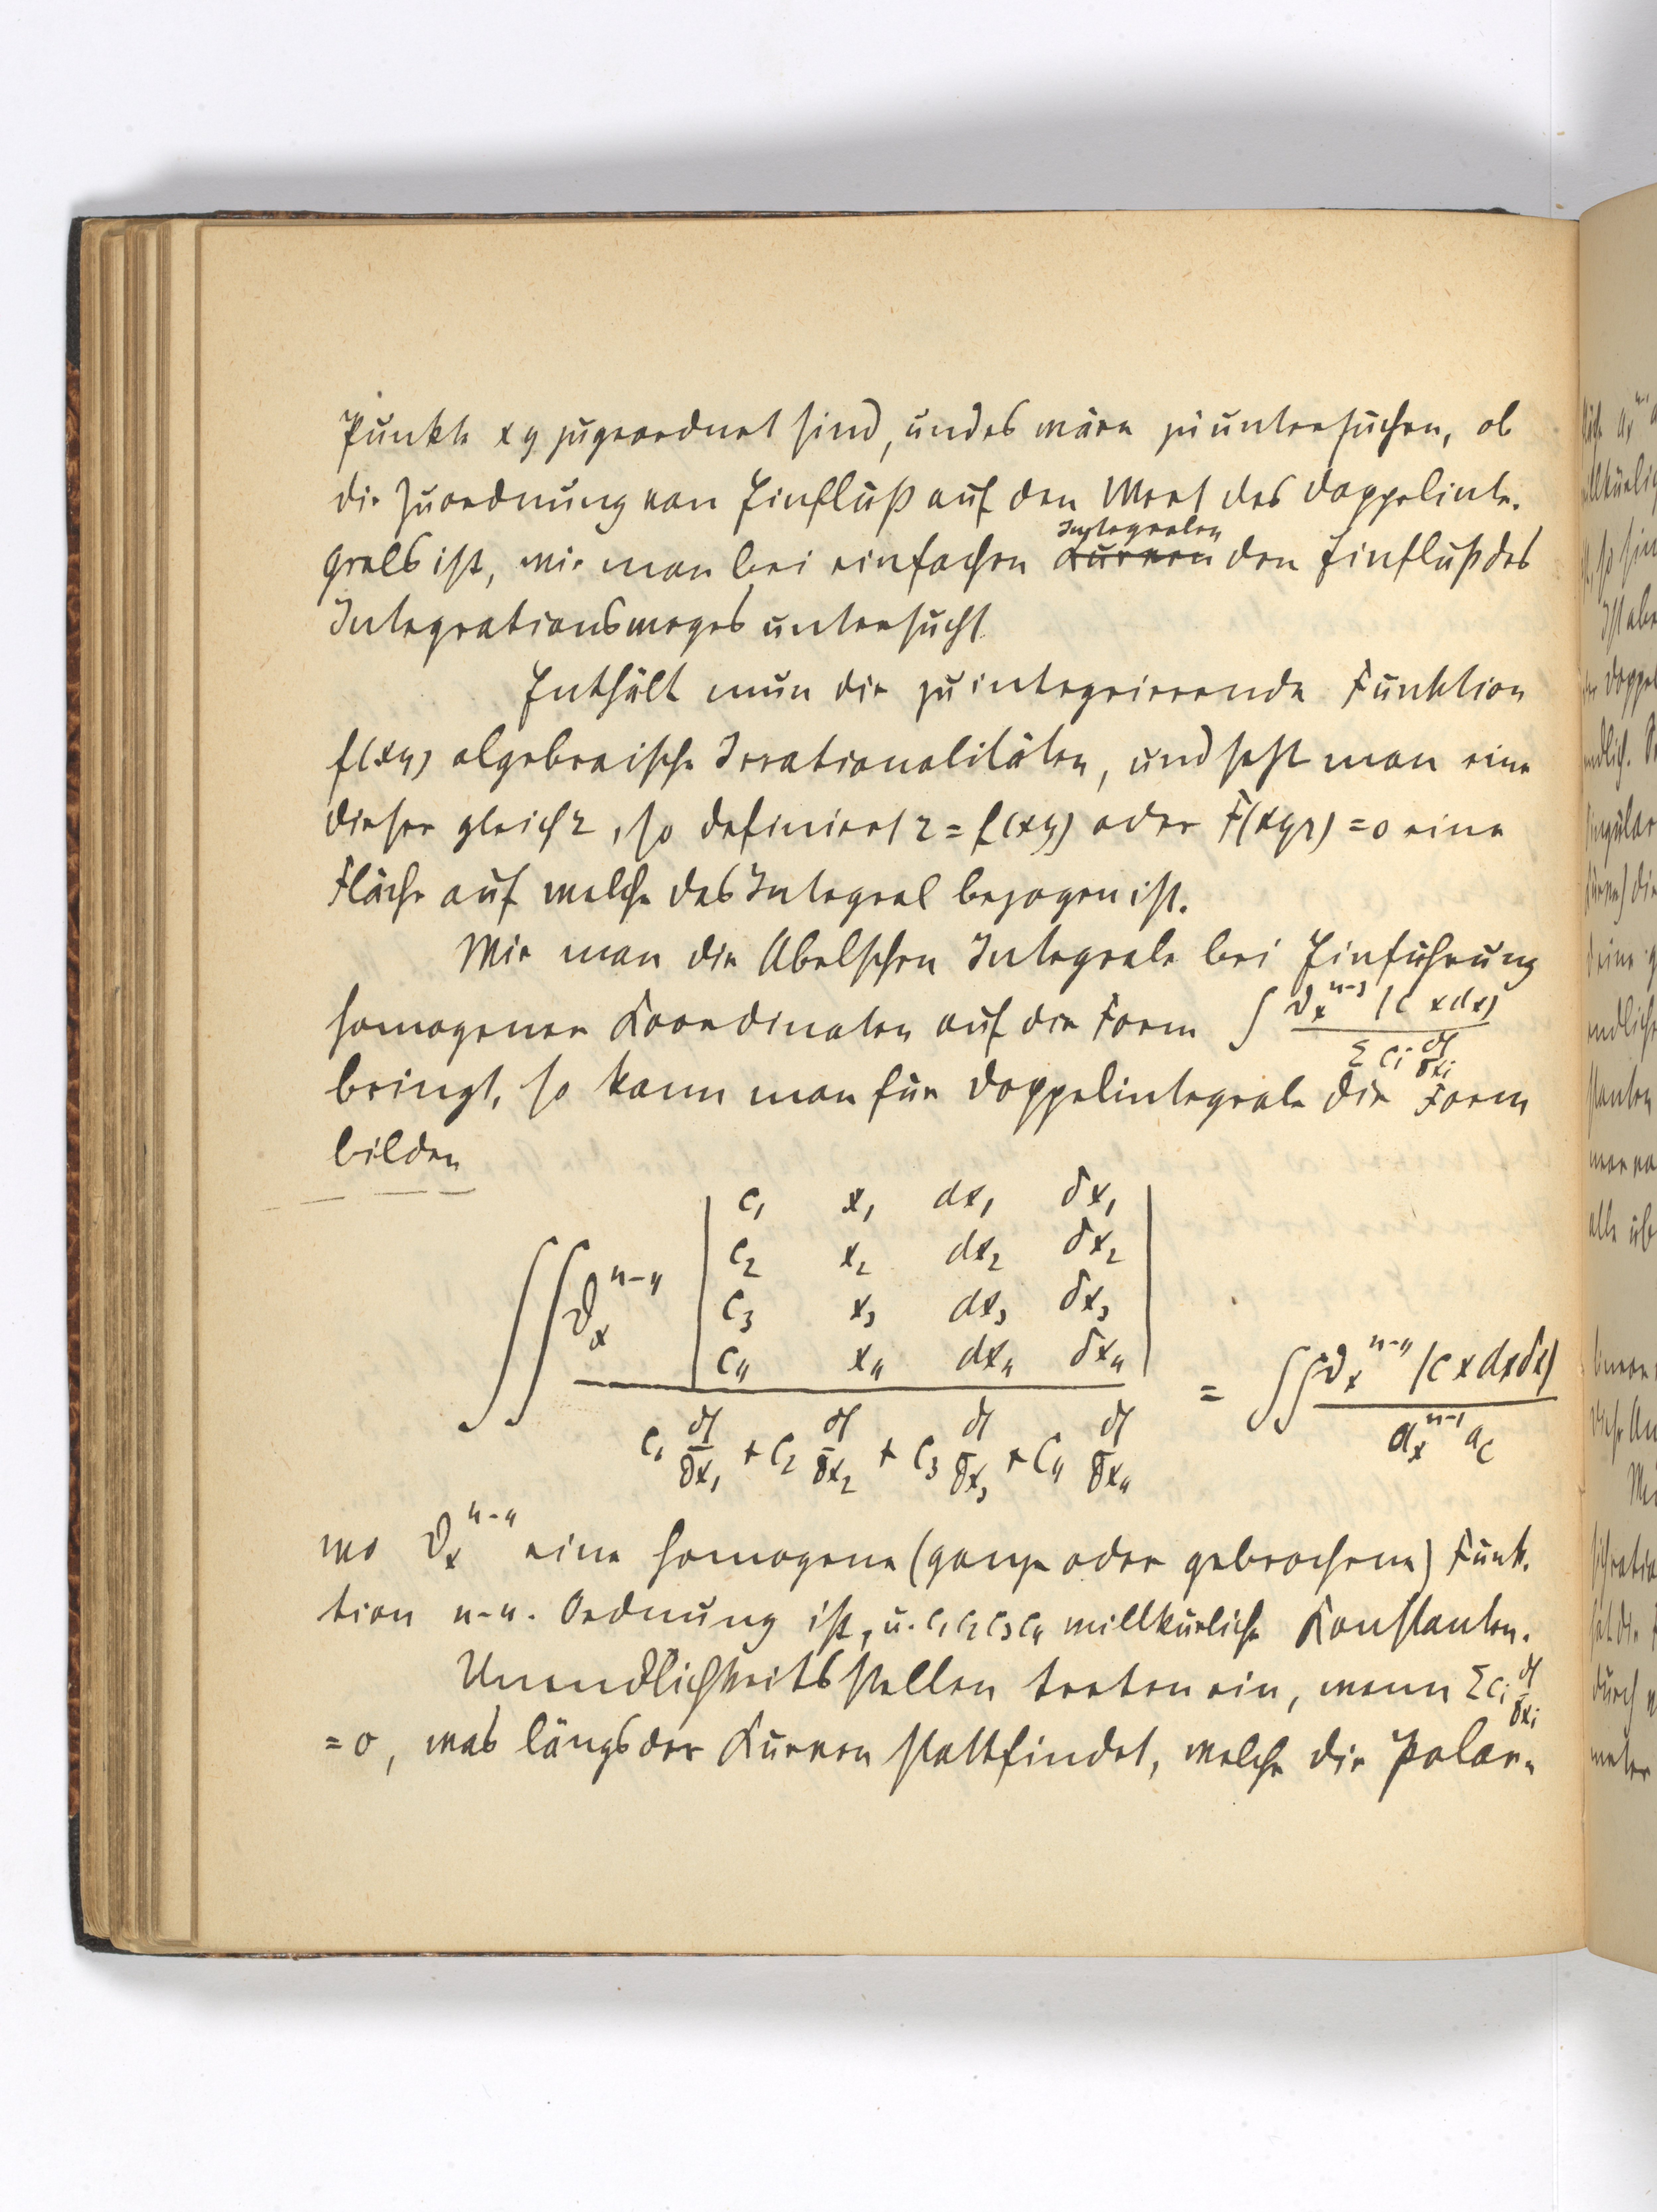 Punkte xy zugeordnet sind, und es wäre zu untersuchen, ob
die Zuordnung von Einfluß auf den Wert des Doppelinte-
grals ist, wie man bei einfachen Integralen den Einfluß des
Integrationsweges untersucht
Enthält nun die zu integrierende Funktion
f(xy) algebraische Irrationalitäten, und setzt man eine
dieser gleich z, so definiert z = f(xy) oder F(xyz) = 0 eine
Fläche auf welche das Integral bezogen ist.
Wie man die Abelschen Integrale bei Einführung
homogener Koordinaten auf die Form ∫ ϑₓⁿ⁻³ (c x dx) / Σ cᵢ ∂f/∂xᵢ
bringt, so kann man für Doppelintegrale die Form
bilden
∫∫ ϑₓⁿ⁻⁴ | c₁ x₁ dx₁ δx₁
c₂ x₂ dx₂ δx₂
c₃ x₃ dx₃ δx₃
c₄ x₄ dx₄ δx₄ |
/ c₁ ∂f/∂x₁ + c₂ ∂f/∂x₂ + c₃ ∂f/∂x₃ + c₄ ∂f/∂x₄ = ∫∫ ϑₓⁿ⁻⁴ (c x dx δx) / aₓⁿ⁻¹ a_c
wo ϑₓⁿ⁻⁴ eine homogene (ganze oder gebrochene) Funk-
tion n-4. Ordnung ist, u. c₁ c₂ c₃ c₄ willkürliche Konstanten.
Unendlichkeitsstellen treten ein, wenn Σ cᵢ ∂f/∂xᵢ
= 0, was längs der Kurven stattfindet, welche die Polar-